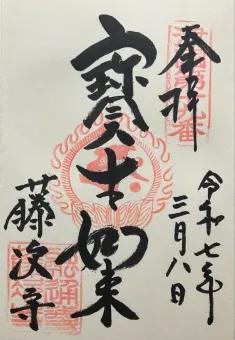 奉拝
令和七年
三月八日
寳生如来
藤次寺